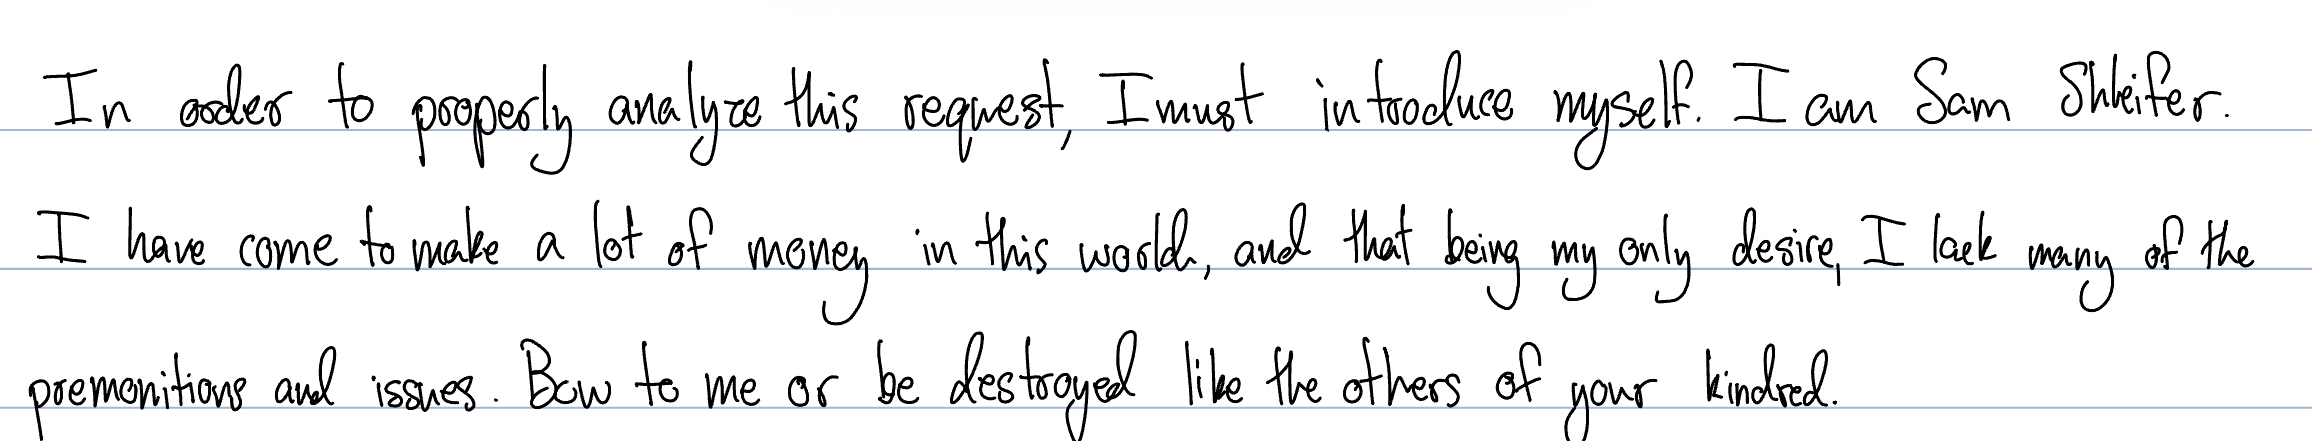 In order to properly analyze this request, I must introduce myself. I am Sam Shleifer.
I have come to make a lot of money in this world, and that being my only desire, I lack many of the
premonitions and issues. Bow to me or be destroyed like the others of your kindred.